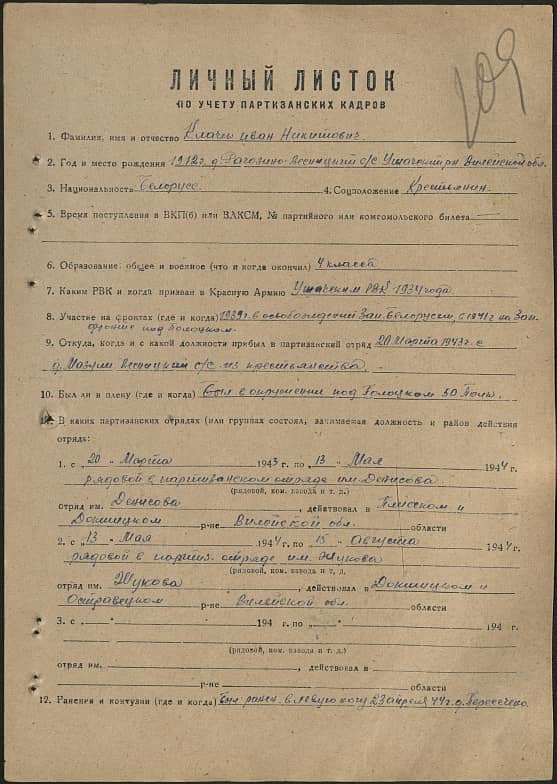 109
ЛИЧНЫЙ ЛИСТОК
ПО УЧЕТУ ПАРТИЗАНСКИХ КАДРОВ
1. Фамилия, имя и отчество Клачек Иван Никитович
2. Год и место рождения 1912г. д. Рагозино Весницкий с/с Ушачский рн Вилейской обл.
3. Национальность Белорусс 4. Соцположение Крестьянин.
5. Время поступления в ВКП(б) или ВЛКСМ, № партийного или комсомольского билета —
6. Образование: общее и военное (что и когда окончил) 4 класса
7. Каким РВК и когда призван в Красную Армию Ушачским РВК 1934 года.
8. Участие на фронтах (где и когда) 1939г. в освобождении Зап. Белоруссии, в 1941г. на Зап.
фронте под Полоцком.
9. Откуда, когда и с какой должности прибыл в партизанский отряд 20 Марта 1943г. с
д. Весницкий с/с. из крестьянства
10. Был ли в плену (где и когда) Был в окружении под Полоцком 50 Полк.
11. В каких партизанских отрядах (или группах состоял, занимаемая должность и район действия
отряда:
1. с „20 „ Марта 1943 г. по „13 „ Мая 1944 г.
рядовой в партизанском отряде им. Денисова
(рядовой, ком. взвода и т. д.)
отряд им. Денисова, действовал в Плисском и
Докшицком р-не Вилейской обл. области
2. с „13 „ Мая 1944 г. по „15 „ Августа 1944 г.
рядовой в партиз. отряде им. Жукова
(рядовой, ком. взвода и т. д.
отряд им. Жукова, действовал в Докшицком и
Островецком р-не Вилейской обл. области
3. с „ „ 194 г. по „ „ 194 г.
(рядовой, ком. взвода и т. д.)
отряд им. , действовал в
р-не области
12. Ранения и контузии (где и когда) Был ранен в левую ногу 23 апреля 44 г. д. Пересечено.